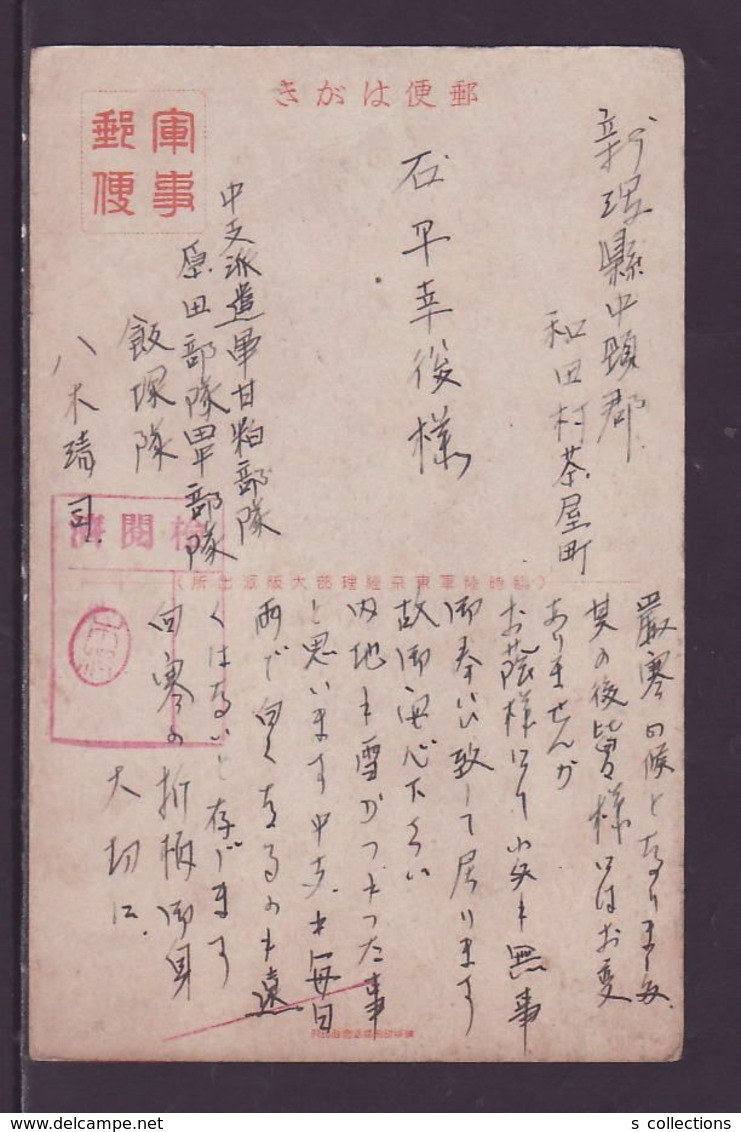 郵便はがき
軍事
郵便
新潟縣中頸郡
和田村茶屋町
石早幸後様
中支派遣軍甘粕部隊
原田部隊田中部隊
飯塚隊
八木靖司
檢閲濟
(臨時陸軍東京經理部大阪派出所)
厳寒の候となりました
其の後皆様にはお変
ありませんか
お蔭様にて小生も無事
御奉公致して居ります
故御安心下さい
内地も雪がつもつた事
と思います中支も毎日
雨で白くなるのも遠
くはないと存じます
向寒の折柄御身
大切に.
s collections